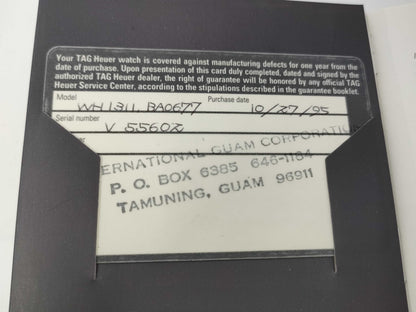 Your TAG Heuer watch is covered against manufacturing defects for one year from the
date of purchase. Upon presentation of this card duly completed, dated and signed by the
authorized TAG Heuer dealer, the right of guarantee will be honored by any official TAG
Heuer Service Center, according to the stipulations described in the guarantee booklet.
Model WH1311.BA0677 Purchase date 10/27/95
Serial number V 55602
ERNATIONAL GUAM CORPORATION
P. O. BOX 6385 646-1184
TAMUNING, GUAM 96911